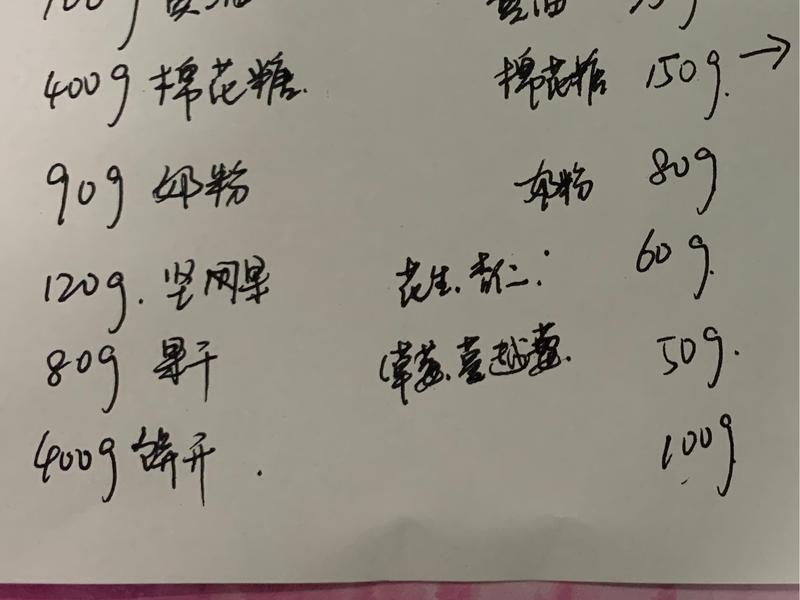 100g 黄油 黄油
400g 棉花糖. 棉花糖 150g. →
90g 奶粉 奶粉 80g
120g. 坚网果 花生、杏仁: 60g.
80g 果干 (草莓、蔓越莓. 50g.
400g 饼开. 100g